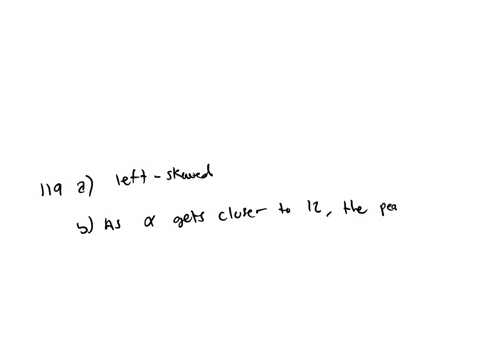 119 a) left-skewed
b) As α gets closer to 12, the pea